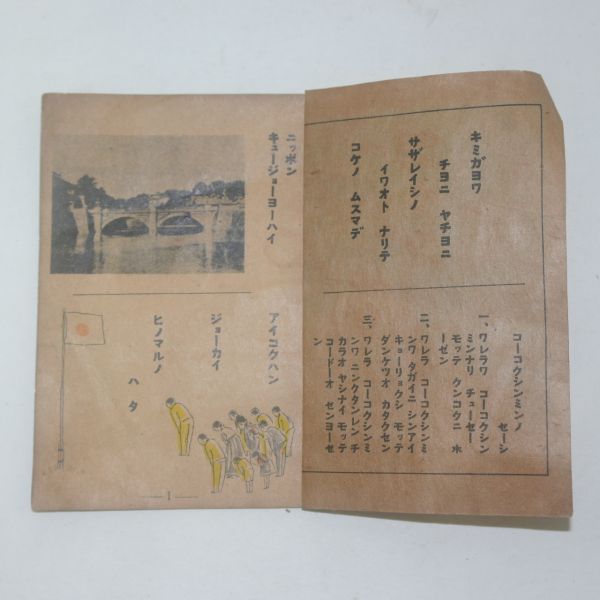 キミガヨワ
チヨニ ヤチヨニ
サザレイシノ
イワオト ナリテ
コケノ ムスマデ
コーコクシンミンノ
セーシ
一、ワレラワ コーコクシン
ミンナリ チューセー
モッテ クンコクニ ホ
ーゼン
二、ワレラ コーコクシンミ
ンワ タガイニ シンアイ
キョーリョクシ モッテ
ダンケツオ カタクセン
三、ワレラ コーコクシンミ
ンワ ニンクタンレン チ
カラオ ヤシナイ モッテ
コードーオ センヨーセ
ン
ニッポン
キュージョーヨーハイ
アイコクハン
ジョーカイ
ヒノマルノ
ハタ
1